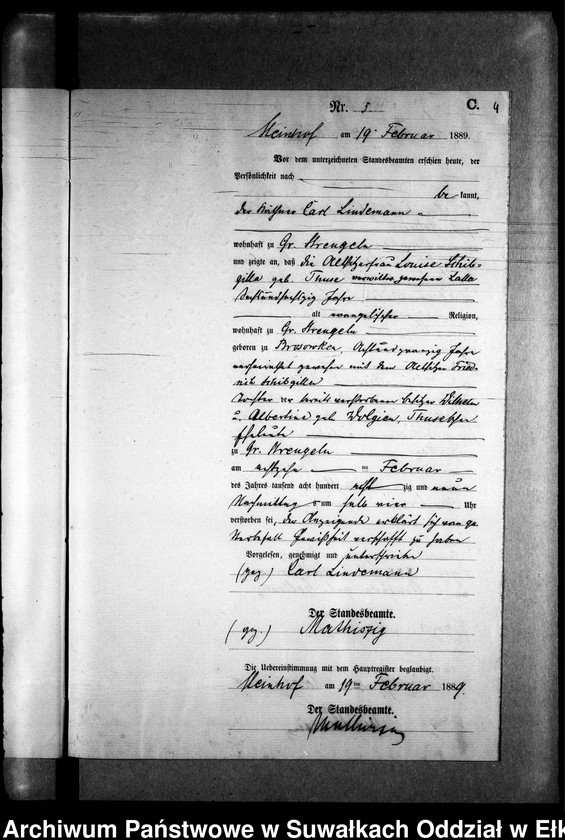 Nr. 5. C. 4
Steinhof am 19 Februar 1889.
Vor dem unterzeichneten Standesbeamten erschien heute, der
Persönlichkeit nach
be kannt,
der Käthner Carl Lindemann
wohnhaft zu Gr. Strengeln
und zeigte an, daß die Altsitzerfrau Louise
geb. Thuse verwittwet gewesene Lalla
sechsundsechszig Jahre
alt evangelischer Religion,
wohnhaft zu Gr. Strengeln
geboren zu Brosowken, Achtundzwanzig Jahre
verheirathet gewesen mit dem Altsitzer Fried-
rich Schibgilla
Tochter der bereits verstorbenen Besitzer Wilhelm
u. Albertine geb. Dolgien, Thuseschen
Eheleute
zu Gr. Strengeln
am achtzehn im Februar
des Jahres tausend acht hundert acht zig und neun
Nachmittag um halb vier Uhr
verstorben sei, der Anzeigende erklärt sich von ge.
Sterbefall Gewißheit verschafft zu haben
Vorgelesen, genehmigt und unterschrieben
(gez.) Carl Lindemann
Der Standesbeamte.
(gz.) Mathiszig
Die Uebereinstimmung mit dem Hauptregister beglaubigt.
Steinhof am 19ten Februar 1889.
Der Standesbeamte.
Archiwum Państwowe w Suwałkach Oddział w Ełk